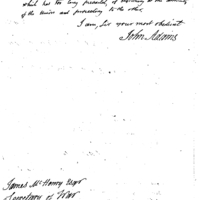 which has too long prevailed, is necessary to the security
of the Union and protecting to the other.
I am, Sir your most obedient
John Adams
James McHenry Esqr
Secretary of War